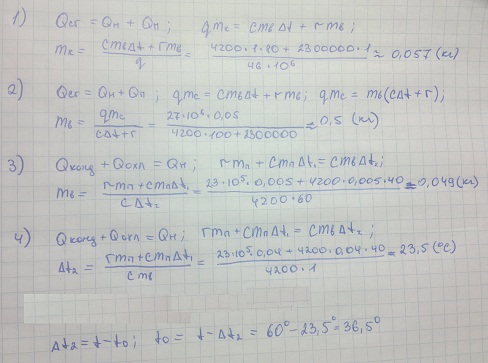 1) Qсг = Qн + Qп ; qmс = cmвΔt + rmв ;
mс = cmвΔt + rmв / q = 4200·1·80 + 2300000·1 / 46·10⁶ ≈ 0,057 (кг)
2) Qсг = Qн + Qп ; qmс = cmвΔt + rmв ; qmс = mв(cΔt + r) ;
mв = qmс / cΔt + r = 27·10⁶·0,05 / 4200·100 + 2300000 ≈ 0,5 (кг)
3) Qконд + Qохл = Qн ; rmп + cmпΔt₁ = cmвΔt₂ ;
mв = rmп + cmпΔt₁ / cΔt₂ = 23·10⁵·0,005 + 4200·0,005·40 / 4200·60 ≈ 0,049 (кг)
4) Qконд + Qохл = Qн ; rmп + cmпΔt₁ = cmвΔt₂ ;
Δt₂ = rmп + cmпΔt₁ / cmв = 23·10⁵·0,04 + 4200·0,04·40 / 4200·1 = 23,5 (°С)
Δt₂ = t - t₀ ; t₀ = t - Δt₂ = 60° - 23,5° = 36,5°